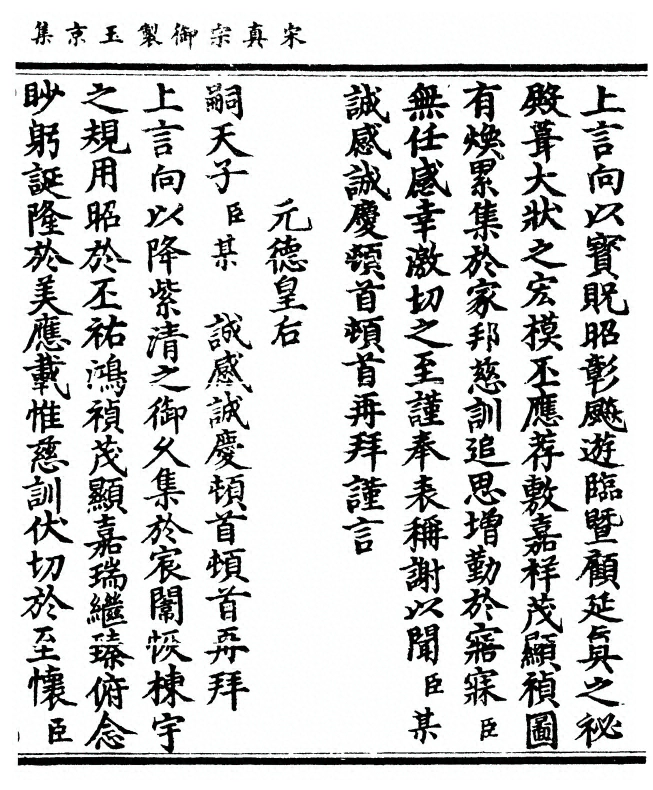 宋真宗御製玉京集
上言向以寶貺昭彰飈遊臨曁顧延眞之祕
殿葺大狀之宏模丕應荐敷嘉祥茂顯禎圖
有煥累集於家邦慈訓追思增勤於寤寐臣
無任感幸激切之至謹奉表稱謝以聞臣某
誠感誠慶頓首頓首再拜謹言
元德皇后
嗣天子臣某 誠感誠慶頓首頓首再拜
上言向以降紫清之御久集於宸闈恢棟宇
之規用昭於丕祐鴻禎茂顯嘉瑞繼臻俯念
眇躬誕隆於美應載惟慈訓伏切於至懷臣